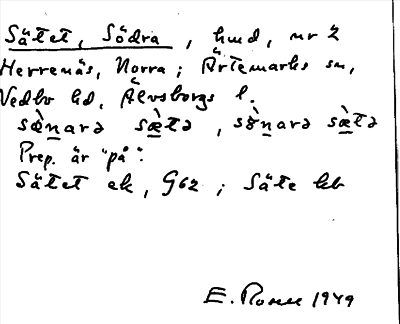 Sätet, Södra, hmd, nr 2
Herrenäs, Norra; Ärtemarks sn,
Vedbo hd, Älvsborgs l.
sæ̀narə sæ̀tə, sø̀narə sæ̀tə
Prep. är "på".
Sätet ek, G62; Säte kb
E. Rosell 1949